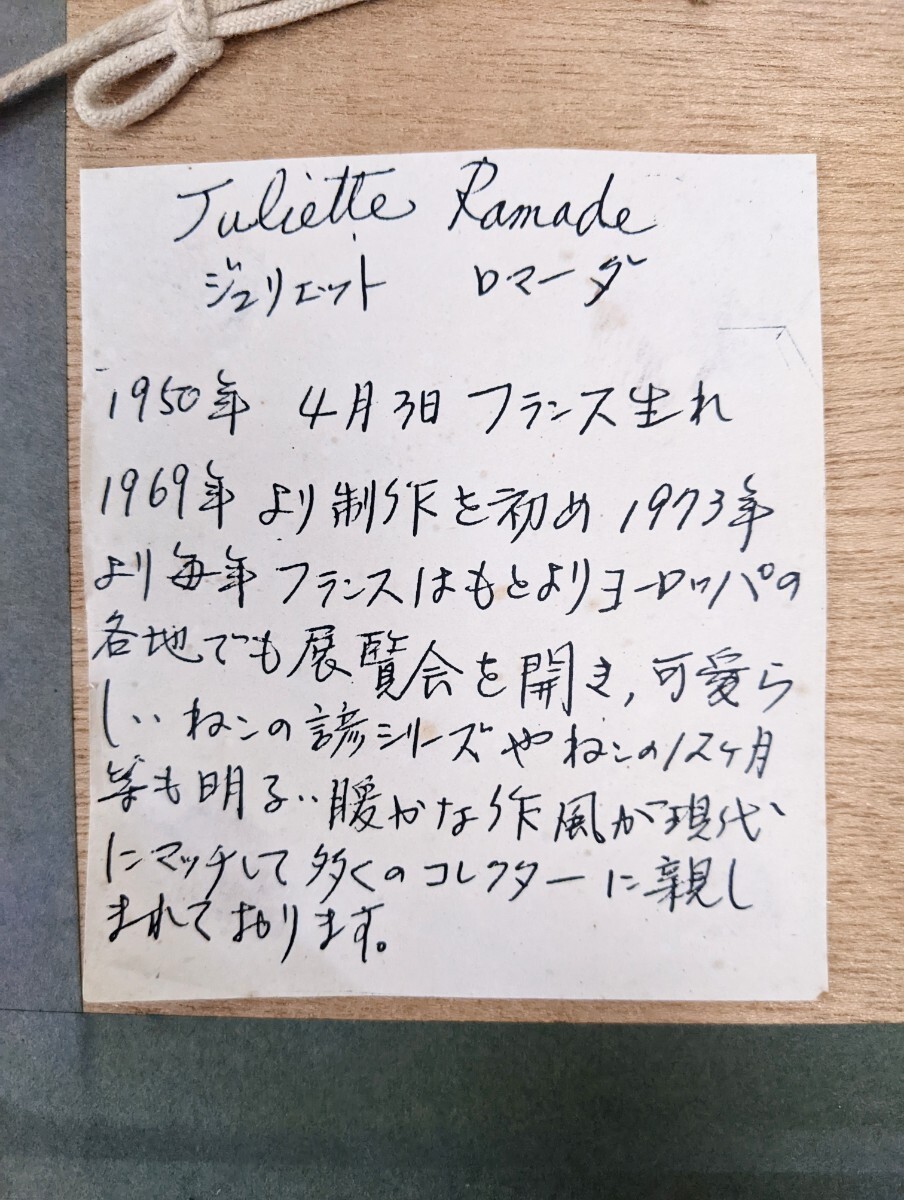 Juliette Ramade
ジュリエット ロマーダ
1950年 4月3日 フランス生れ
1969年 より制作を初め 1973年
より毎年 フランスはもとよりヨーロッパの
各地でも展覧会を開き,可愛ら
しい ねこの諺シリーズやねこの12ヶ月
等も明るい暖かな作風が現代
にマッチして多くのコレクターに親し
まれております。